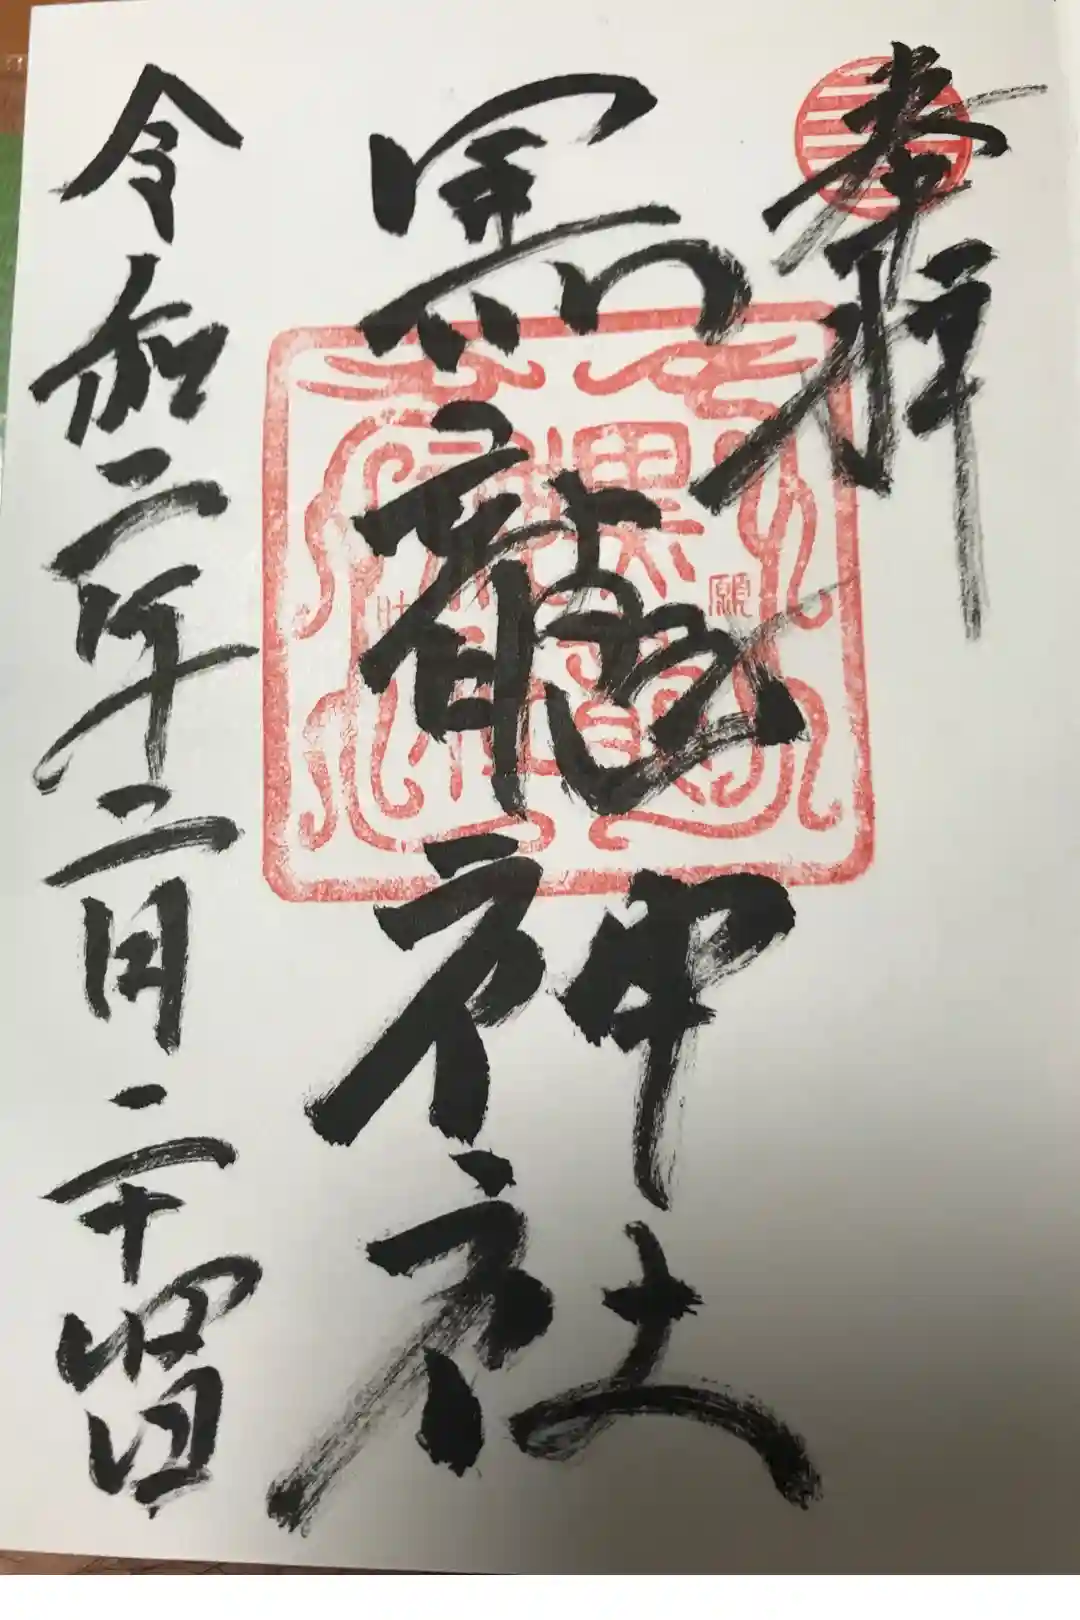 奉拝
黒龍神社
令和二年二月二十四日
願
叶